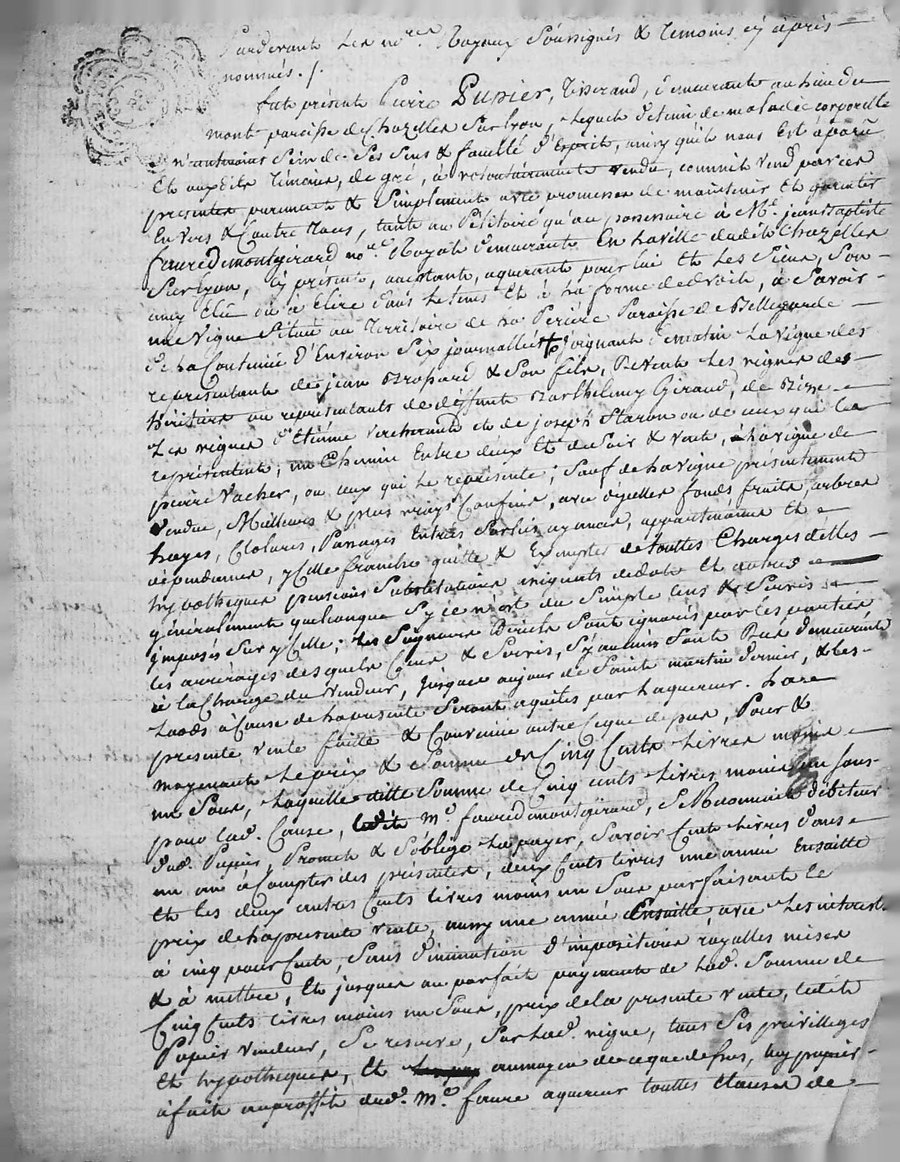 Pardevant Les no.res Royaux Soussignés & temoins cy après
nommés ./.
fut présent Pierre Pupier, tisserand, demeurant au hameau du
mont paroisse de Chazelles Sur Lyon, Lequel detenu de maladie corporelle
n'eantmoins Sein de Ses Sens & faculté d'Esprit, ainsy qu'il nous Est aparu
Et auxdits témoins, de gré, a volontairement vendu, comme il vend par ces
presentes purement & Simplement avec promesse de maintenir Et garantir
Envers & Contre tous, tant au Pétitoire qu'au possessoire à M.e jean Baptiste
faure d montgirard no.re Royal demeurant En la ville dudit Chazelles
Sur Lyon, Cy présent, acceptant, aquerant pour lui Et Les Siens, Son
amy Elu ou à Elire dans Le tems Et à La forme de droit, à Savoir
une vigne Située au territoire de la Perière Paroisse de Bellegarde
de La Contenue d'Environ Six journallets joignant de matin La vigne des
representants de jean Brossard & Son fils, De vent Les vignes des
héritiers ou representants de deffunt Barthelemy Giraud, de Bize
Les vignes d'Etienne Vercherand et de joseph Staron ou de ceux qui les
représentent, un Chemin Entre deux Et de Soir & vent, La vigne de
pierre Vacher, ou ceux qui Le représente; Sauf de La vigne présentement
Vendue, Meilleurs & plus vrays Confins, avec d'ycelles fonds, fruits, arbres
hayes, Clotures, Passages Entrées Sorties aysances, appartenances Et
dépendances, ycelle franche quitte & Exempte de touttes Charges dettes
hypotheques pensions Substitutions de dots Et autres
généralement quelconque Sy ce n'est du Simple Cens & Servis
imposés Sur ycelle; Les Seigneurs Directs Sont ignorés par les parties
les arrérages desquels Cens & Servis, S'y aucuns Sont Dus demeurent
à la Charge du Vendeur, jusques au jour de Sainte martin Dernier, & Les
Laods à Cause de la vente Seront aquités par L'aquereur. La
presente vente faitte & Convenue outre Ce que dessus, Pour &
moyenant Le prix & Somme de Cinq Cents Livres moins
un Sous, Laquelle ditte Somme de Cinq cents livres moins un Sous
pour lad. Cause, ledit M.e faure d montgirard, Débiteur
dud. Pupier, Promet & S'oblige La payer, Savoir Cent Livres dans
un an à Compter des presentes, deux Cents livres une année Ensuitte
Et les deux autres Cents livres moins un Sous parfaisant le
prix de la presente vente, aussy une année Ensuitte, avec Les interest
à cinq pour Cent, Sans diminution d'impositions royalles mises
& à mettre, Et jusques au parfait payement de Lad. Somme de
Cinq Cents livres moins un Sous, prix de la presente Vente, ledit
Pupier vendeur, Se reserve, Sur Lad. vigne, tous Ses privilleges
Et hypotheques, Et au moyen de ce que dessus, Ledit Pupier
à fait au proffit dud. M.e faure aquereur touttes Clauses de